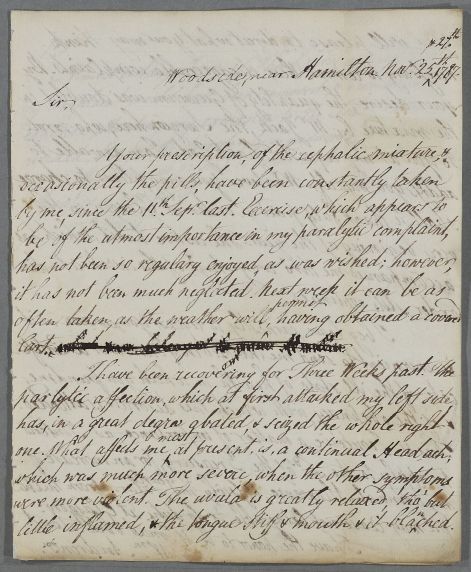 & 27th
Woodside, near Hamilton Nov. 25th 1787.
Sir,
Your prescription, of the cephalic mixture, &
occasionally the pills, have been constantly taken
by me, since the 11th Sepr. last. Exercise, which appears to
be of the utmost importance in my paralytic complaint,
has not been so regulary enjoyed, as was wished; however,
it has not been much neglected. Next week it can be as
often taken, as the weather will permit, having obtained a coverd
cart
I have been recovering for Three Weeks past. The
parlytic affection, which at first attacked my left side
has, in a great degree abated, & seized the whole right
one. What affects me most at present, is, a continual Headach;
which was much more severe, when the other symptoms
were more violent. The uvula is greatly relaxed, tho' but
little inflamed, & the tongue stiff & mouth & it blanched.